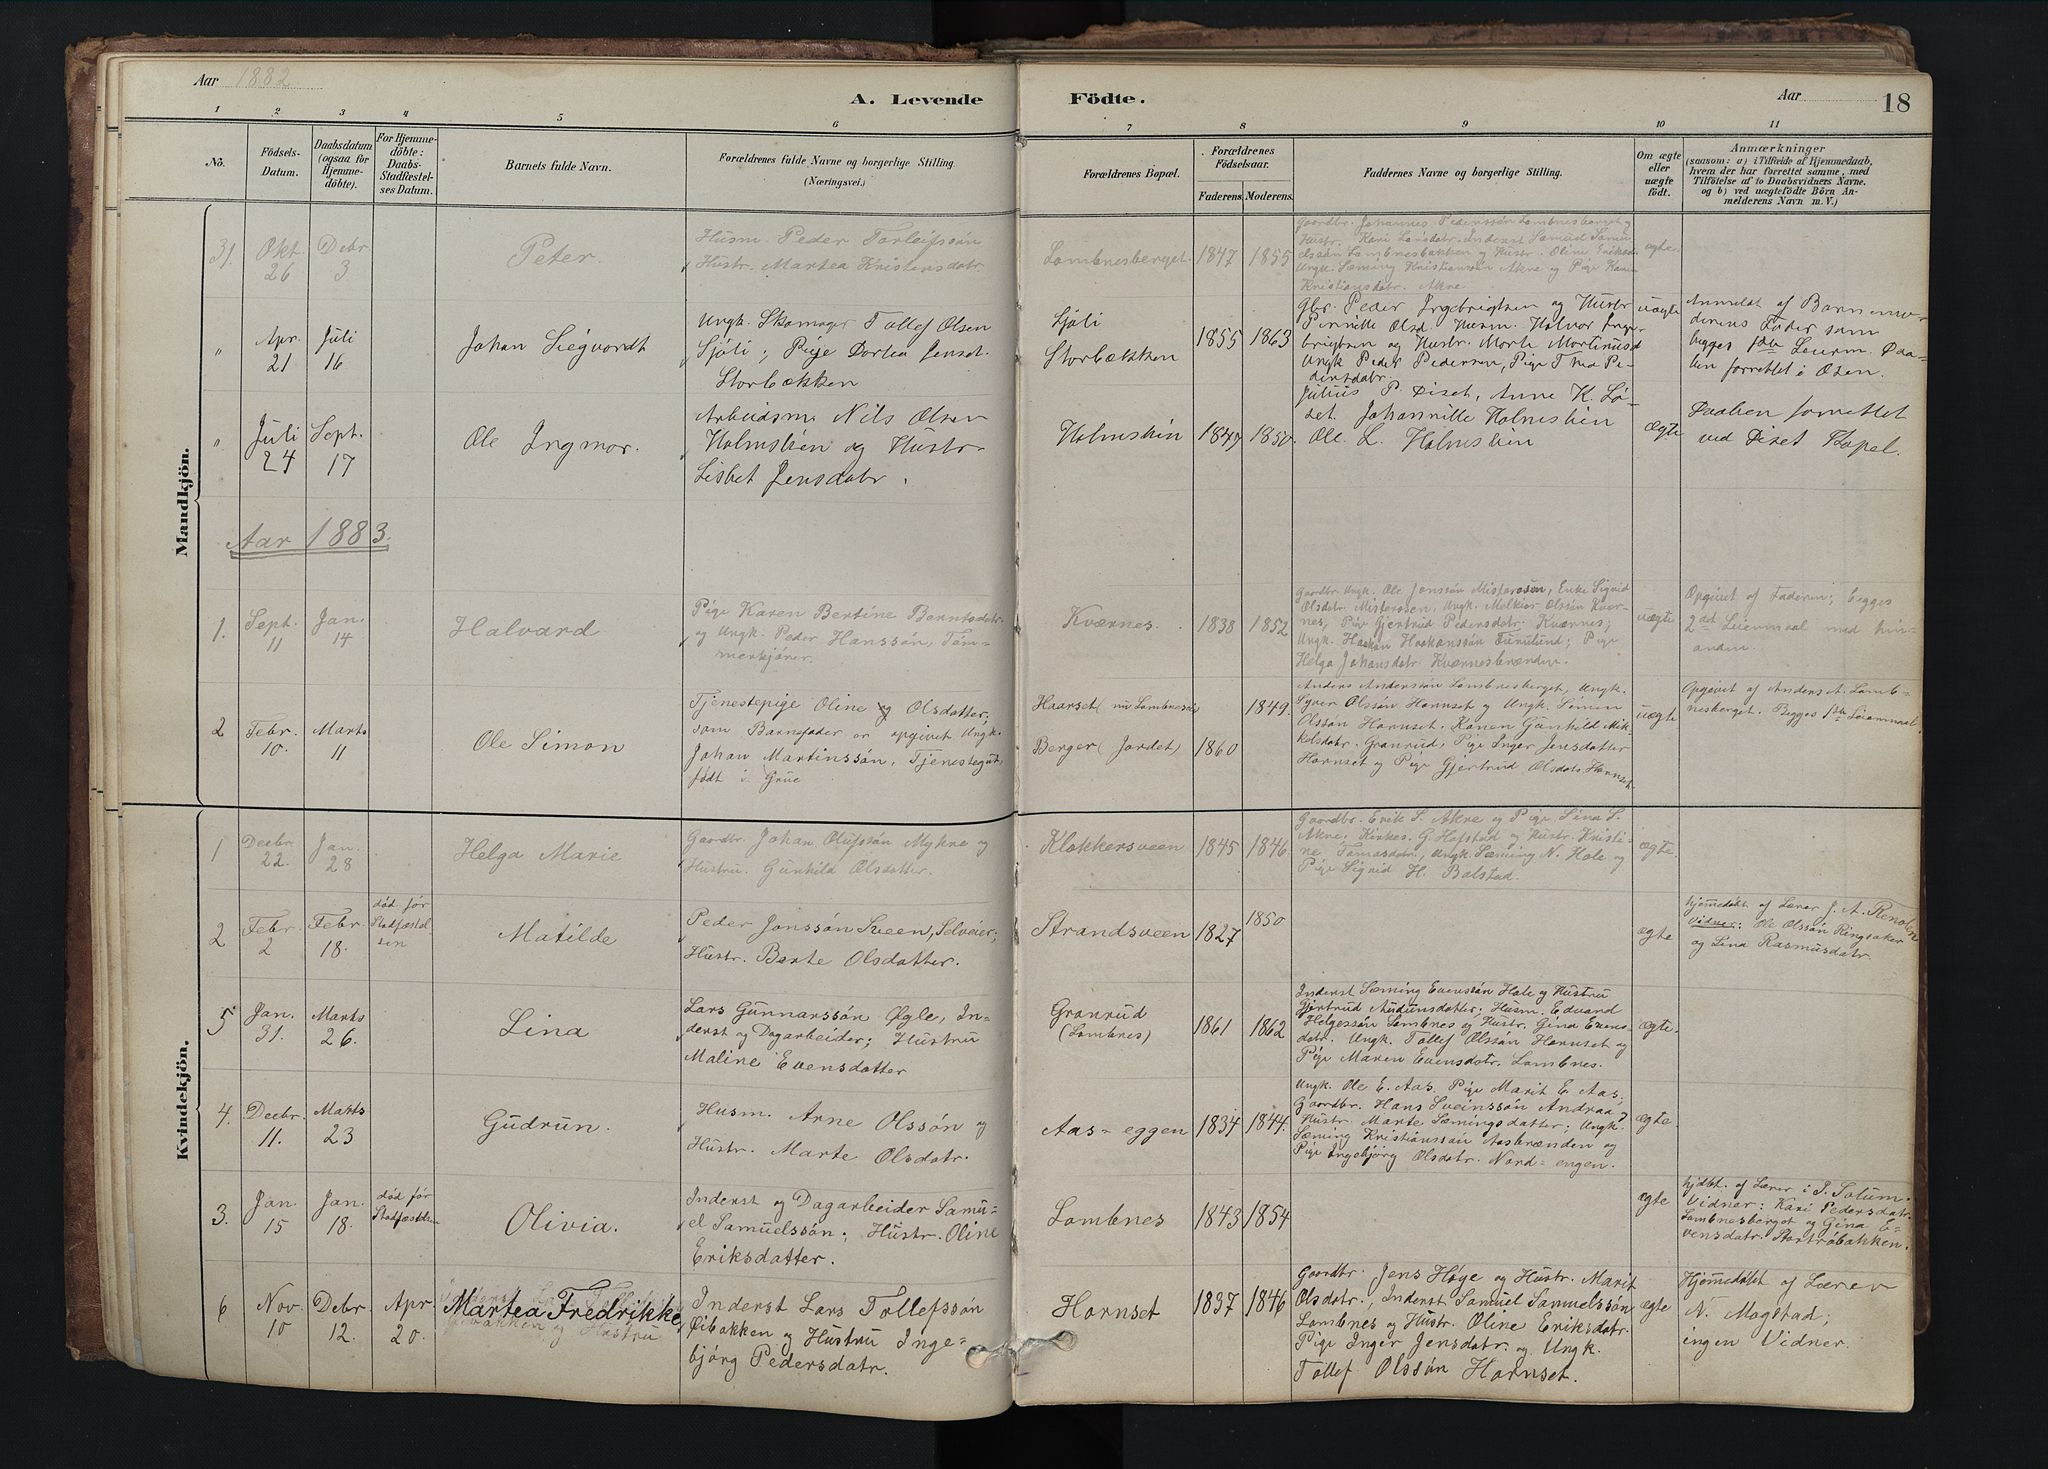 Aar 1882
A. Levende
Födte.
Aar
18
1
2
3
4
5
6
7
8
9
10
11
No.
Födsels-
Datum.
Daabsdatum
(ogsaa for
Hjemme-
döbte).
For Hjemme-
döbte:
Daabs-
Stadfæstel-
ses Datum.
Barnets fulde Navn.
Forældrenes fulde Navne og borgerlige Stilling.
(Næringsvei.)
Forældrenes Bopæl.
Forældrenes
Födselsaar.
Faderens
Moderens.
Faddernes Navne og borgerlige Stilling.
Om ægte
eller
uægte
födt.
Anmærkninger
(saasom: a) i Tilfælde af Hjemmedaab,
hvem der har forrettet samme, med
Tilföielse af to Daabsvidners Navne,
og b) ved uægtefödte Börn An-
melderens Navn m. V.)
Mandkjön.
31.
Okt.
26
Debr
3
Peter.
Husm. Peder Torleifssøn
Hustr. Martea Kristensdatr.
Lombnesberget.
1847
1855
Gaardbr. Johannes Pederssøn Lombnesberget og
Hustr. Kari Larsdatr. Inderst Samuel Samu
elssøn Lombnesbakken og Hustr. Oline Eriksdr.
Ungk. Sæming Kristianssøn Akre og Pige Karen
Kristiansdatr. Akre
ægte.
"
Apr.
21
Juli
16
Johan Siegvordt
Ungk. Skomager Tollef Olsen
Sjøli; Pige Dortea Jensd.
Storbækken
Sjøli
Storbækken
1855
1863
Gbr. Peder Ingebrigtsen og Hustr
Pernille Olsd. Husm. Halvor Inge-
brigtsen og Hustr. Marte Martinusd
Ungk Peder Pedersen, Pige Thea Pe-
dersdatr.
uægte
Anmeldt af Barnemo-
derens Fader som
begges 1ste Leierm. Daa-
ben forrettet i Osen.
"
Juli
24
Sept.
17
Ole Ingmor.
Arbeidsm. Nils Olsen
Holmstien og Hustr.
Lisbet Jensdatr.
1849
1850.
Julius P. Diset, Anne K. Lø-
set. Johannille Holmstien
Ole. L. Holmstien
ægte
Daaben forrettet
ved Diset Kapel.
Aar 1883.
1.
Sept.
11
Jan.
14
Halvard
Pige Karen Bertine Berntsdatr.
og Ungk. Peder Hanssøn, Töm-
merkjører.
Kværnes.
1838
1852
Gaardbr. Ungk. Ole Jonssøn Misterosen, Enke Sigrid
Olsdatr. Misterosen, Ungk. Melkior Olssøn Kvær-
nes, Pige Gjertrud Pedersdatr. Kværnes;
Ungk. Haakon Haakonssøn Furulund; Pige
Helga Johansdatr. Kværnesbrænden.
uægte
Opgivet af Faderen; begges
2det Leiermaal med hin-
anden.
2
Febr.
10.
Marts
11
Ole Simon
Tjenestepige Oline Olsdatter;
som Barnefader er opgivet Ungk.
Johan Martinssøn, Tjenestegut
født i Grue
Haarset (nu Lombnes)
Berger (Jordet)
1860
1849.
Anders Anderssøn Lombnesberget, Ungk.
Syver Olssøn Hornset og Ungk. Simen
Olssøn Hornset, Karen Gunhild Mik-
kelsdatr. Granrud, Pige Inger Jensdatter
Hornset og Pige Gjertrud Olsdatr. Hornset
uægte
Opgivet af Anders A. Lomb-
nesberget. Begges 1ste Leiermaal
Kvindekjön.
1
Decbr.
22.
Jan.
28
Helga Marie
Gaardbr. Johan Olufssøn Myhre og
Hustru. Gunhild Olsdatter.
Klokkersveen
1845
1846
Gaardbr. Erik S. Akre og Pige Lina S.
Akre; Kirkes. G. Hofstad og Hustr. Kristi-
ne Tomasdatr., Ungk. Sæming N. Hole og
Pige Sigrid H. Bolstad.
ægte
2
Febr.
2
Febr.
18.
død før
Stadfæstel
sen
Matilde
Peder Jonssøn Sveen, Selveier;
Hustr. Berte Olsdatter.
Strandsveen
1827
1850
ægte
hjemedøbt af Lærer J. A. Renolen
Vidner: Ole Olssøn Ringsaker
og Lina Rasmusdatr.
5
Jan.
31.
Marts
26.
Lina
Lars Gunnarssøn Øgle, In-
derst og Dagarbeider; Hustru
Maline Evensdatter
Granrud
(Lombnes)
1861
1862
Inderst Sæming Evenssøn Hole og Hustru
Gjertrud Audunsdatter; Husm. Edvard
Helgessøn Lombnes og Hustr. Gina Evens-
datr. Ungk. Tollef Olssøn Hornset og
Pige Maren Evensdatr. Lombnes.
ægte
4.
Decbr.
11.
Marts
23
Gudrun.
Husm. Arne Olssøn og
Hustr. Marte Olsdatr.
Aas-eggen
1834
1844.
Ungk. Ole E. Aas. Pige Marit E. Aas;
Gaardbr. Hans Sveinssøn Andraa og
Hustr. Marte Sæmingsdatter; Ungk.
Sæming Kristianssøn Aasbrænden og
Pige Ingebjørg Olsdatr. Nord-engen.
ægte
3.
Jan.
15
Jan.
18.
død før
Stadfæstelsen
Olivia.
Inderst og Dagarbeider Samu-
el Samuelssøn; Hustr. Oline
Eriksdatter.
Lombnes
1843
1854
ægte
hjdbt. af Lærer i J. Solum.
Vidner: Kari Pedersdatr.
Lombnesberget og Gina E-
vensdatr.
6
Nov.
10
Debr.
12.
Apr.
20.
Martea Fredrikke
Inderst Lars Tollefssøn
Øibakken og Hustru Inge-
bjørg Pedersdatr.
Hornset
1837
1846
Gaardbr. Jens Høye og Hustr. Marit
Olsdatr., Inderst Samuel Samuelssøn
Lombnes og Hustr. Oline Eriksdatr.
Pige Inger Jensdatr. og Ungk.
Tollef Olssøn Hornset.
ægte
Hjemmedøbt af Lærer
N. Mogstad;
ingen Vidner.